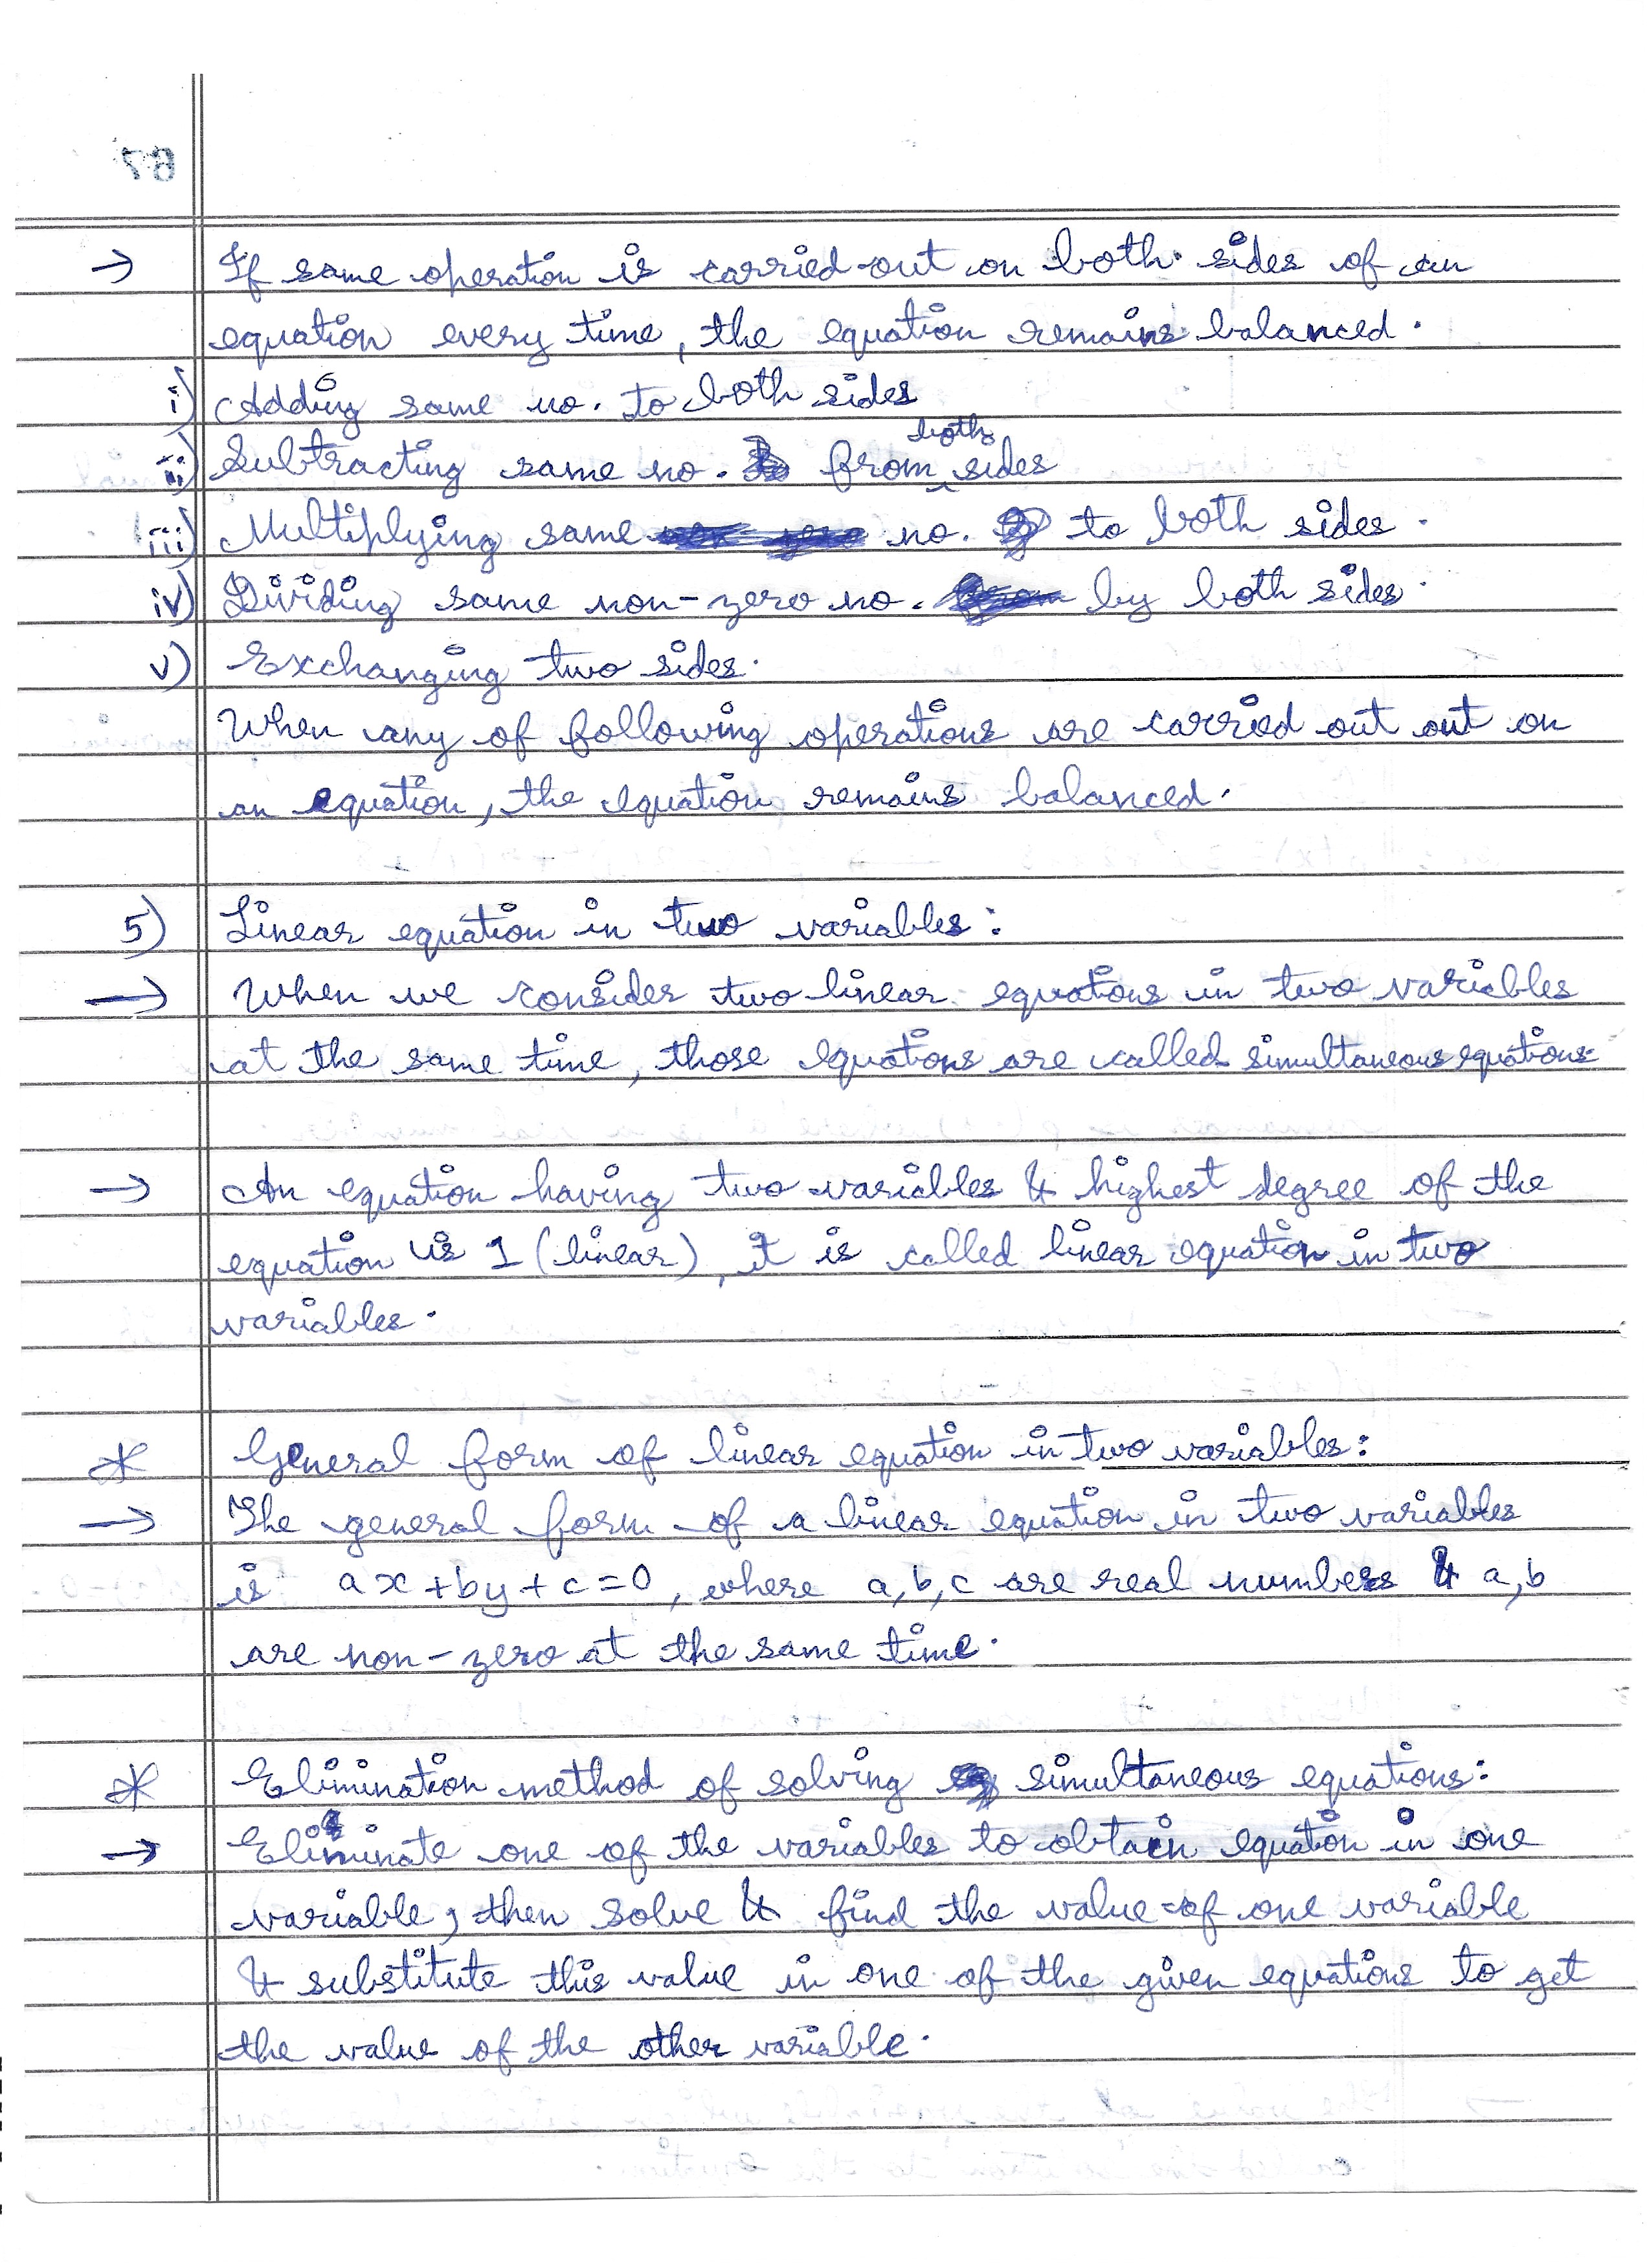 → If same operation is carried out on both sides of an
equation every time, the equation remains balanced.
i) Adding same no. to both sides
ii) Subtracting same no. from both sides
iii) Multiplying same no. to both sides.
iv) Dividing same non-zero no. by both sides.
v) Exchanging two sides.
When any of following operations are carried out out on
an equation, the equation remains balanced.
5) Linear equation in two variables:
→ When we consider two linear equations in two variables
at the same time, those equations are called simultaneous equations.
→ An equation having two variables & highest degree of the
equation is 1 (linear), it is called linear equation in two
variables.
* General form of linear equation in two variables:
→ The general form of a linear equation in two variables
is ax+by+c=0, where a,b,c are real numbers & a,b
are non-zero at the same time.
* Elimination method of solving simultaneous equations:
→ Eliminate one of the variables to obtain equation in one
variable, then solve & find the value of one variable
& substitute this value in one of the given equations to get
the value of the other variable.